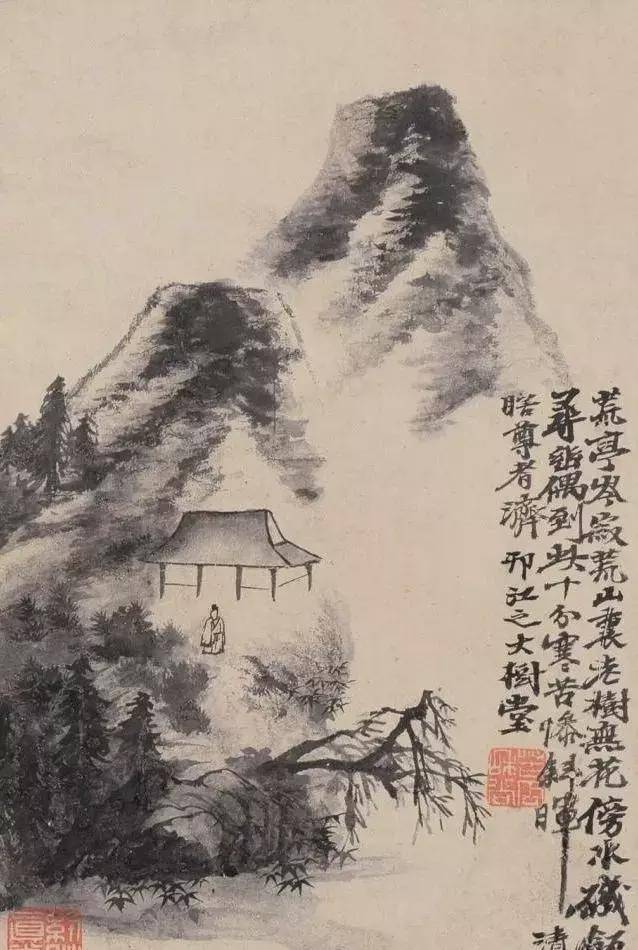 荒亭岑寂荒山裏老樹無花傍水磯飯
尋詩偶到此十分寒苦慘斜暉清
瞎尊者濟 邗江之大樹堂